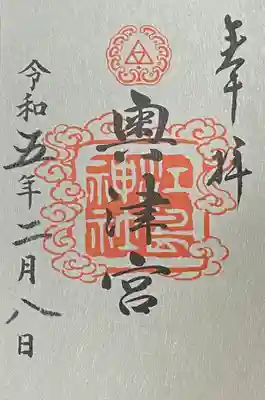 奉拝
奥津宮
江島神社
令和五年二月八日